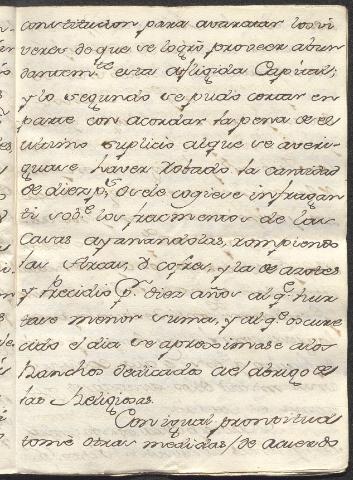 constitucion para avaratar los vi
veres de que se logró proveer abun
dantemte esta afligida Capital;
y lo segundo se pudo cortar en
parte con acordar la pena de el
ultimo suplicio al que se averi-
guase haver robado la cantidad
de diez ps, ó se le cogiese infragan
ti sobe los fracmentos de las
casas allanandolas, rompiendo
las Arcas, ó cofres, y la de azotes
y Precidio pr diez años al qe hur
tase menor suma, y al qe oscure
cido el dia se aproximase a los
Ranchos dedicados al abrigo de
las Religiosas.
Con igual prontitud
tomé otras medidas de acuerdo